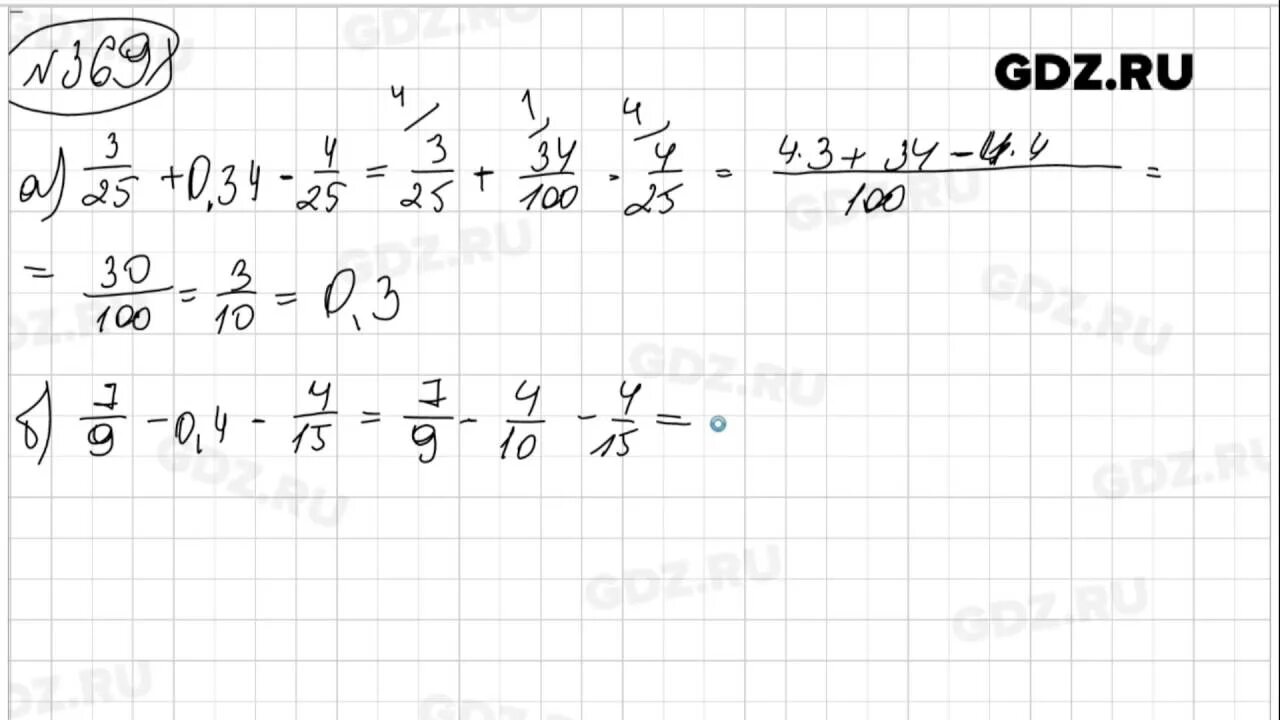 №369
GDZ.RU
а) 3/25 + 0,34 - 4/25 = 3/25 (4 + 34/100 (1 - 4/25 (4 = (4·3 + 34 - 4·4)/100 =
= 30/100 = 3/10 = 0,3
б) 7/9 - 0,4 - 4/15 = 7/9 - 4/10 - 4/15 =